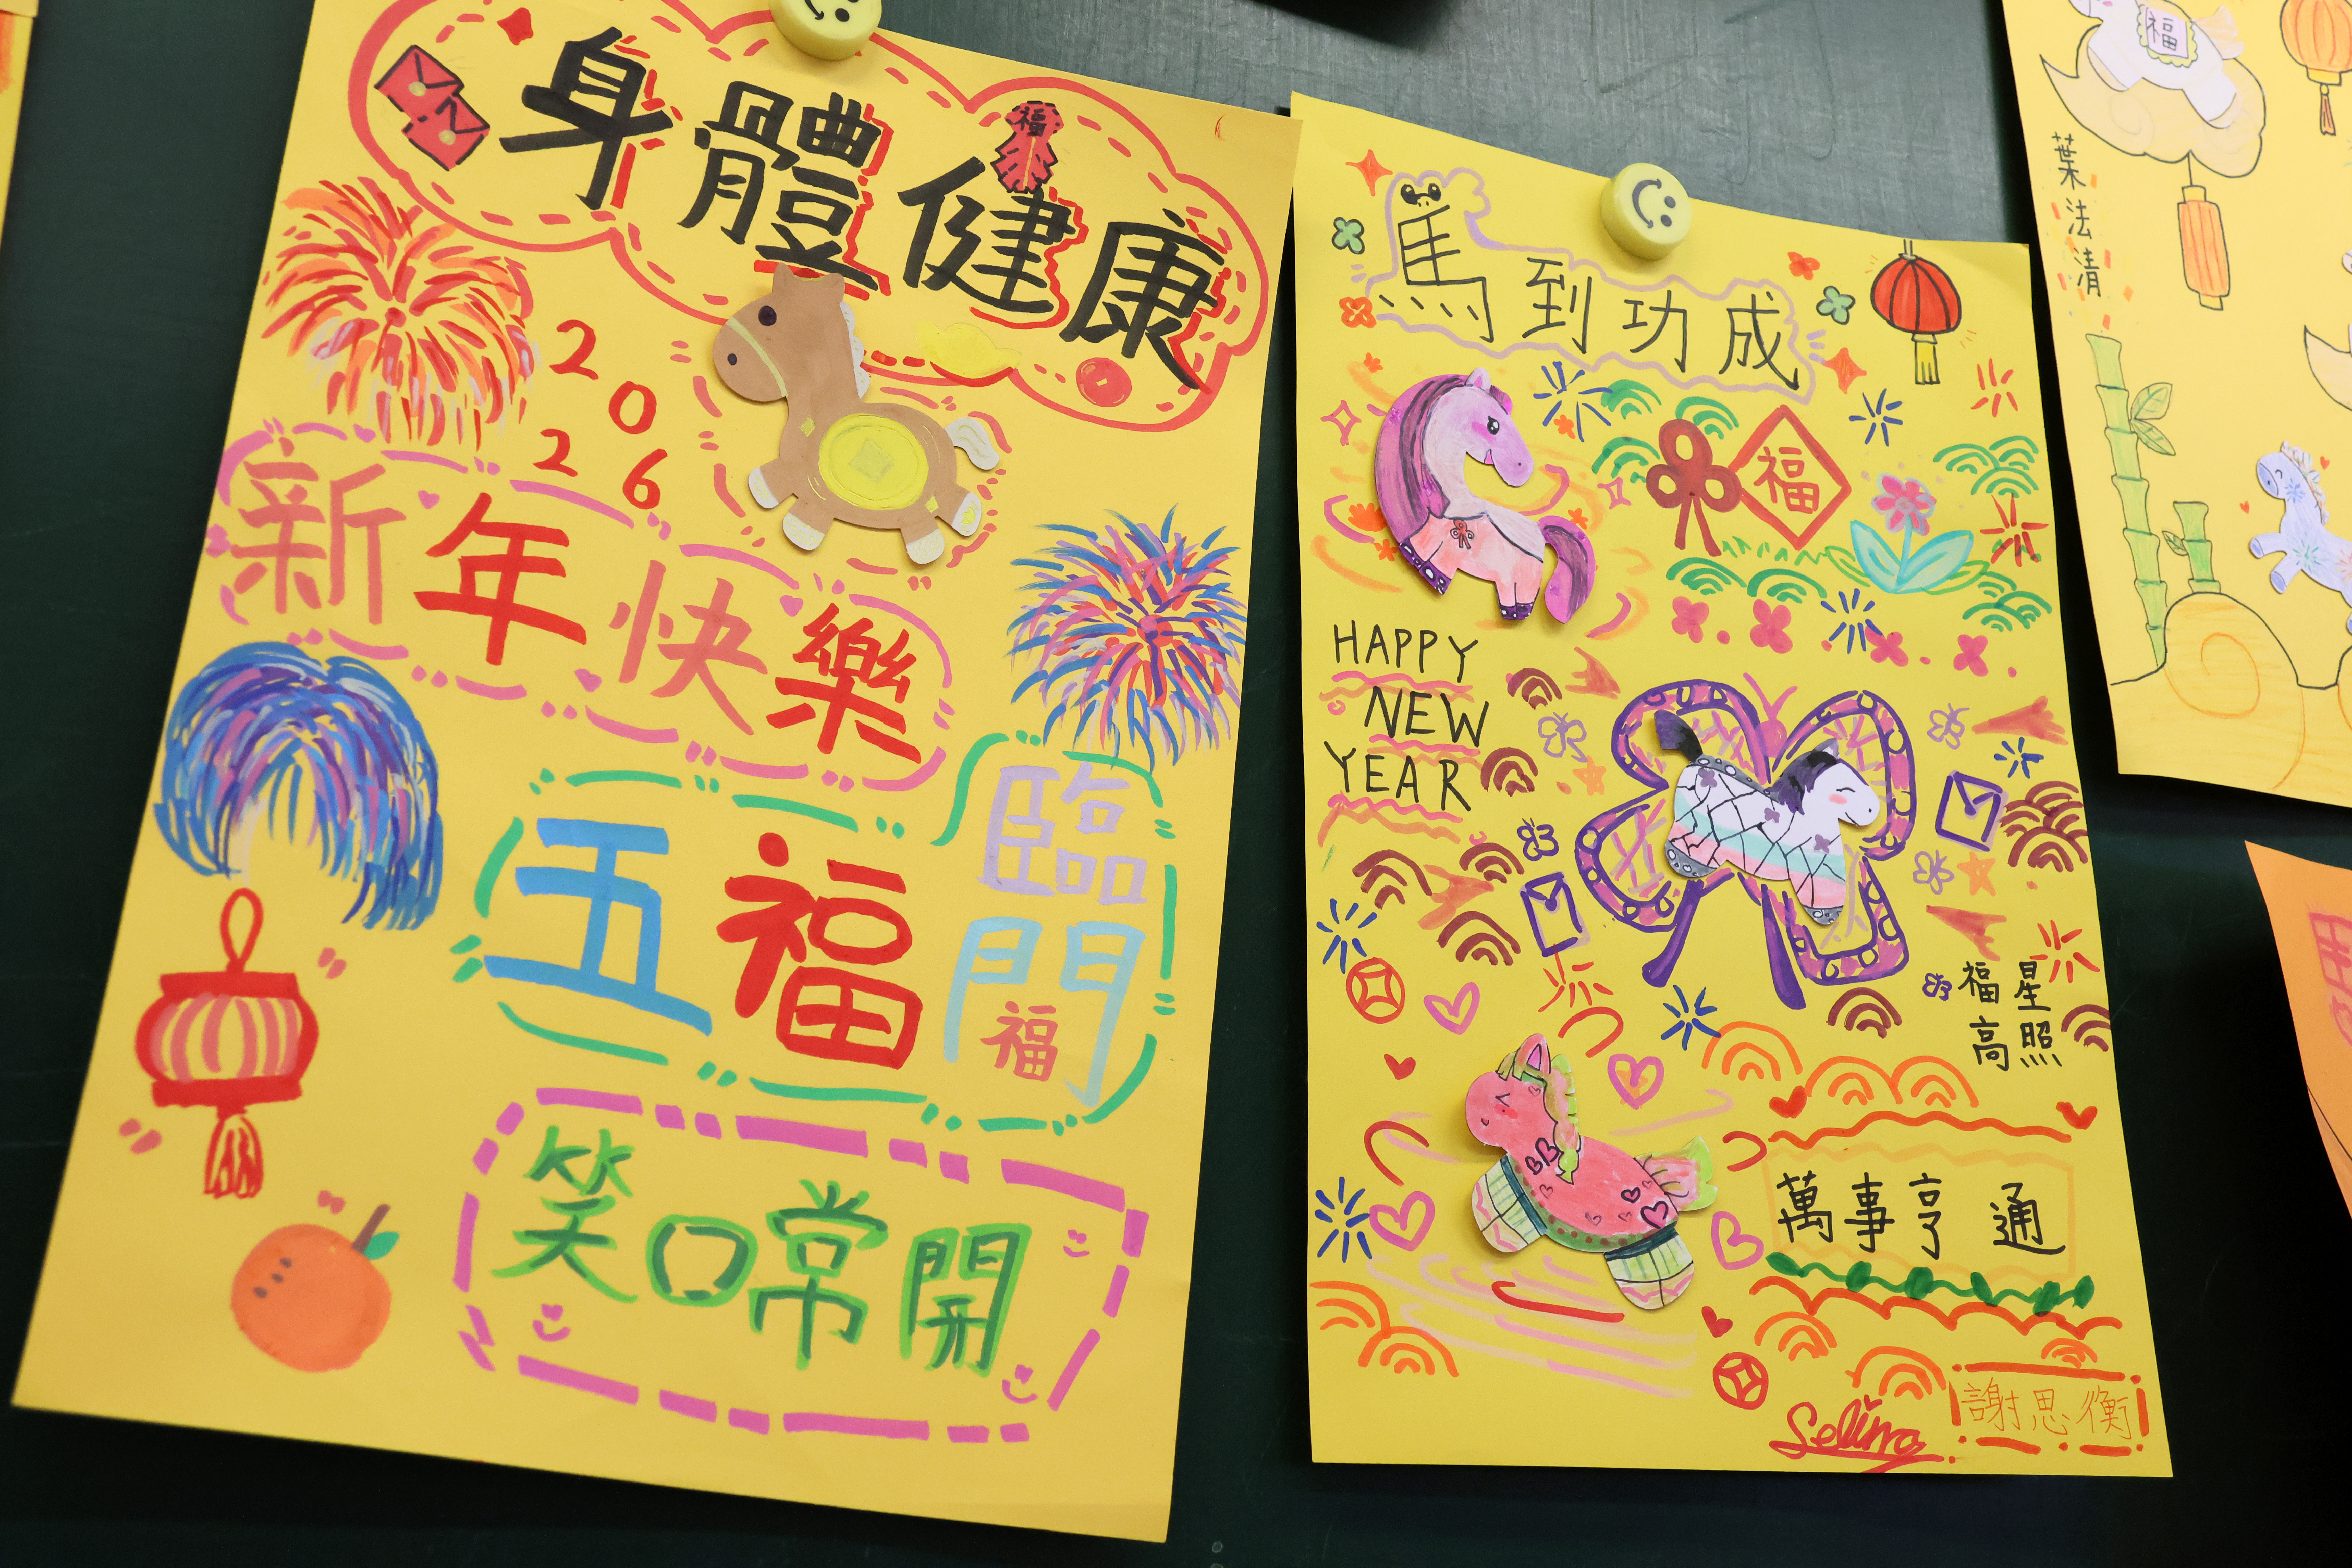 身體健康
福
2026
新年快樂
五福臨門
福
笑口常開
馬到功成
福
HAPPY
NEW
YEAR
福星
高照
萬事亨通
Selina
謝思衡
福
葉法清